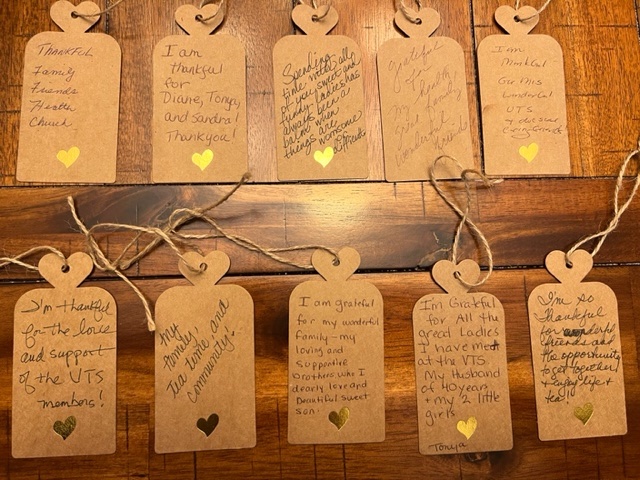 Thankful
Family
Friends
Health
Church
I am
thankful
for
Diane, Tonya,
and Sandra!
Thankyou!
Spending
time with all
of you sweet and
funny ladies has
always been a
balm when
things are
worrisome
or difficult
Grateful
for
my health,
my family
wonderful
friends!
I am
Thankful
For this
Wonderful
VTS
I'm thankful
for the love
and support
of the VTS
members!
My
family,
tea time and
community!
I am grateful
for my wonderful
family - my
loving and
supportive
brothers who I
dearly love and
beautiful sweet
son.
I'm Grateful
for All the
great Ladies
I have met
at the VTS.
My Husband
of 40 years
+ my 2 little
girls.
Tonya
I'm so
thankful
for wonderful
friends and
the opportunity
to get together
+ enjoy life +
tea!!